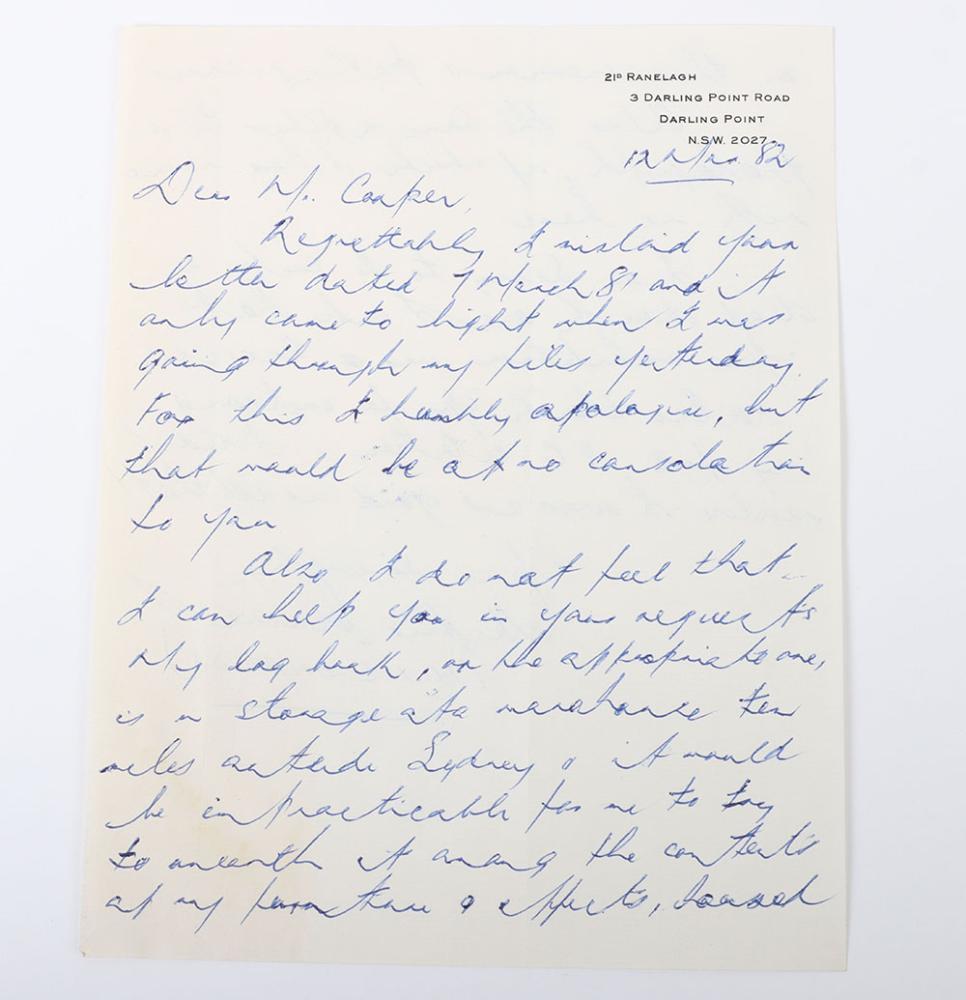 21D RANELAGH
3 DARLING POINT ROAD
DARLING POINT
N.S.W. 2027.
12 Mar. 82
Dear Mr. Cooper,
Regrettably I mislaid your
letter dated 7 March 81 and it
only came to light when I was
going through my files yesterday.
For this I humbly apologise, but
that would be of no consolation
to you
Also I do not feel that
I can help you in your requests
My log book, or the appropriate one,
is in storage at a warehouse ten
miles outside Sydney & it would
be impracticable for me to try
to unearth it among the contents
of my furniture & effects,